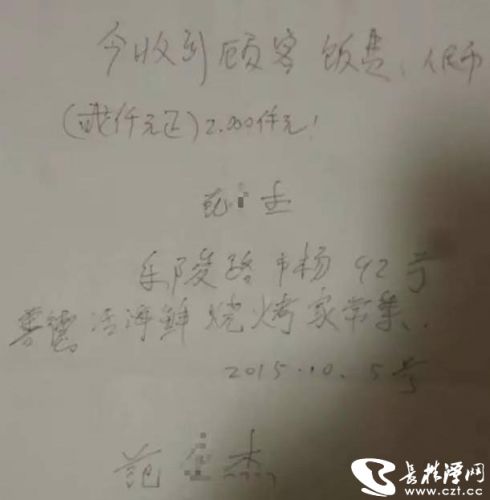 今收到顾客饭费、人民币
(贰仟元正)2.000仟元!
乐陵路市场92号
善德活海鲜烧烤家常菜.
2015.10.5号
范 杰
长株潭网
www.czt.cc